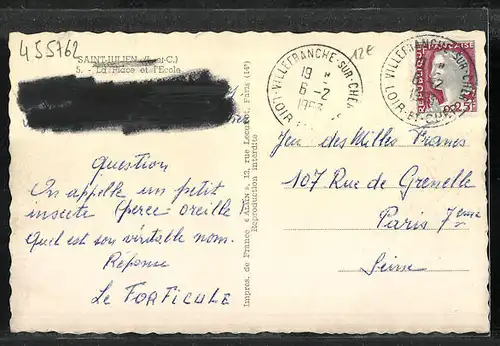 455762
SAINT-JULIEN (L.-et-C.)
5. - La Place et l'École
12€
VILLEFRANCHE-SUR-CHER
19 H
6-2
LOIR-ET-CHER
VILLEFRANCHE-SUR-CHER
LOIR-ET-CHER
0,25
Question
On appelle un petit
insecte (perce oreille
Quel est son véritable nom.
Réponse
Le FORFICULE
Impres. de France « ALFA », 12, rue Lecuirot, Paris (14e)
Reproduction interdite
Jeu des Milles Francs
107 Rue de Grenelle
Paris 7ème
Seine